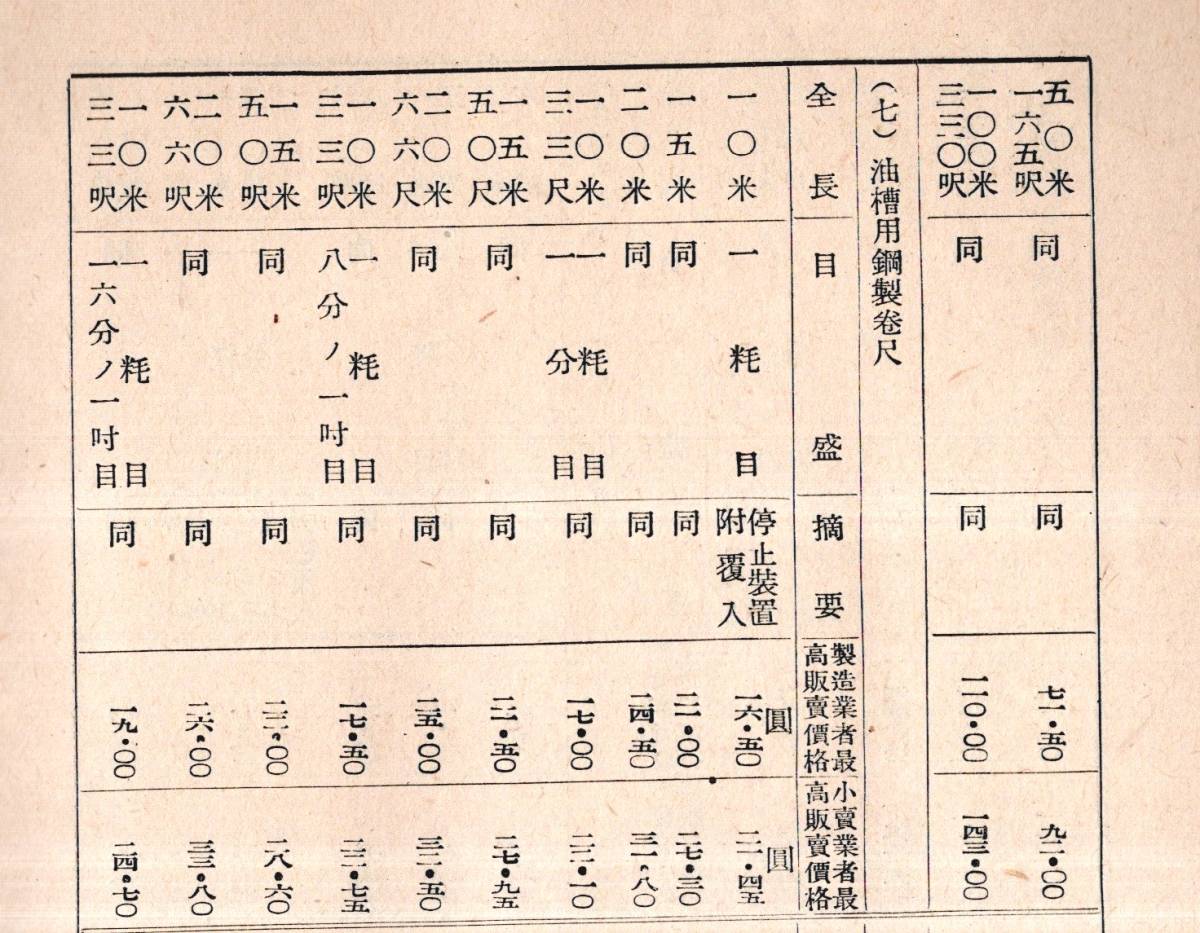 五〇米
一六五呎
同
同
七一・五〇
九二・〇〇
一〇〇米
三三〇呎
同
同
一一〇・〇〇
一四三・〇〇
(七)油槽用鋼製卷尺
全長
目盛
摘要
製造業者最
高販賣價格
小賣業者最
高販賣價格
一〇米
一耗目
停止裝置
附覆入
圓
一六・五〇
圓
二一・四五
一五米
同
同
二一・〇〇
二七・三〇
二〇米
同
同
二四・五〇
三一・八〇
一〇米
三三尺
一耗目
一分目
同
一七・〇〇
二二・一〇
一五米
五〇尺
同
同
二一・五〇
二七・九五
二〇米
六六尺
同
同
二五・〇〇
三二・五〇
一〇米
三三呎
一耗目
八分ノ一吋目
同
一七・五〇
二二・七五
一五米
五〇呎
同
同
二二・〇〇
二八・六〇
二〇米
六六呎
同
同
二六・〇〇
三三・八〇
一〇米
三三呎
一耗目
一六分ノ一吋目
同
一九・〇〇
二四・七〇